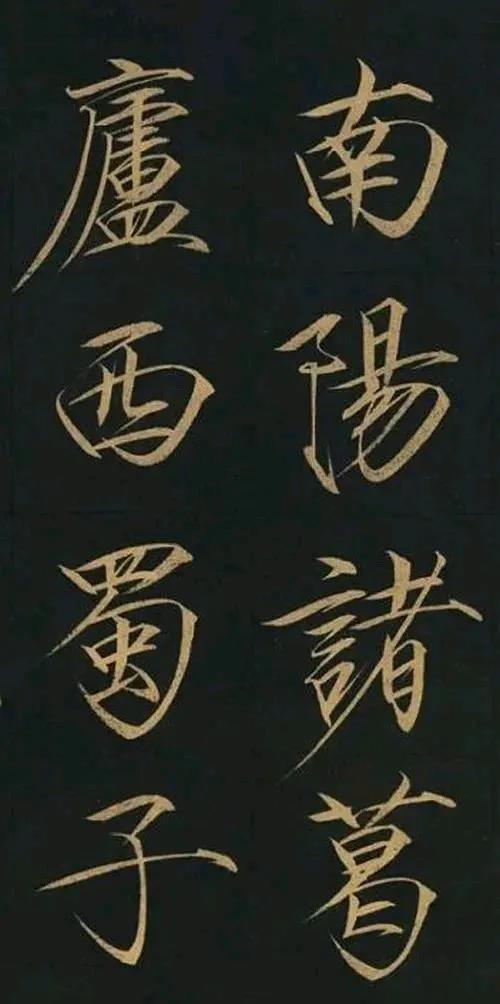 南陽諸葛
廬西蜀子